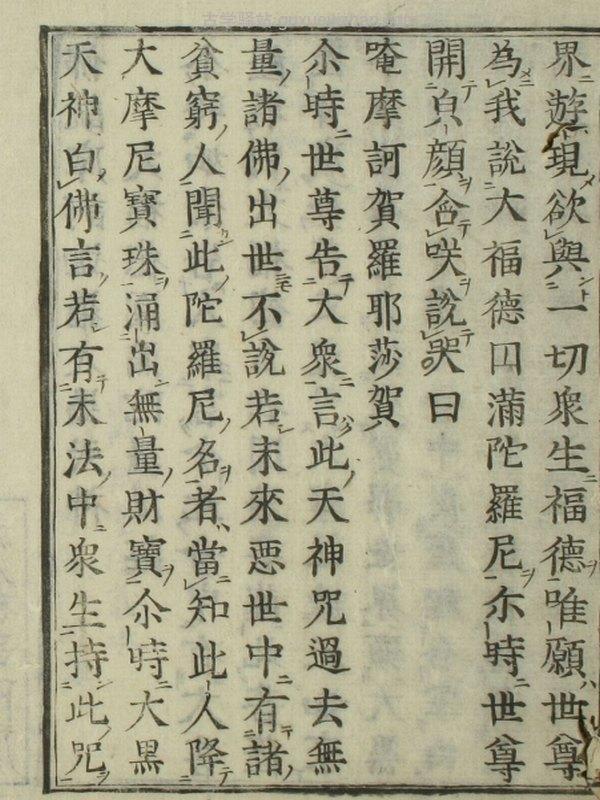 界遊現欲與一切衆生福德唯願世尊
為我說大福德囙滿陀羅尼尒時世尊
開㒵顔含咲說呪曰
唵摩訶賀羅耶莎賀
尒時世尊告大衆言此天神咒過去無
量諸佛出世不說若未來惡世中有諸
貧窮人聞此陀羅尼名者當知此人降
大摩尼寶珠涌出無量財寶尒時大黒
天神白佛言若有末法中衆生持此咒